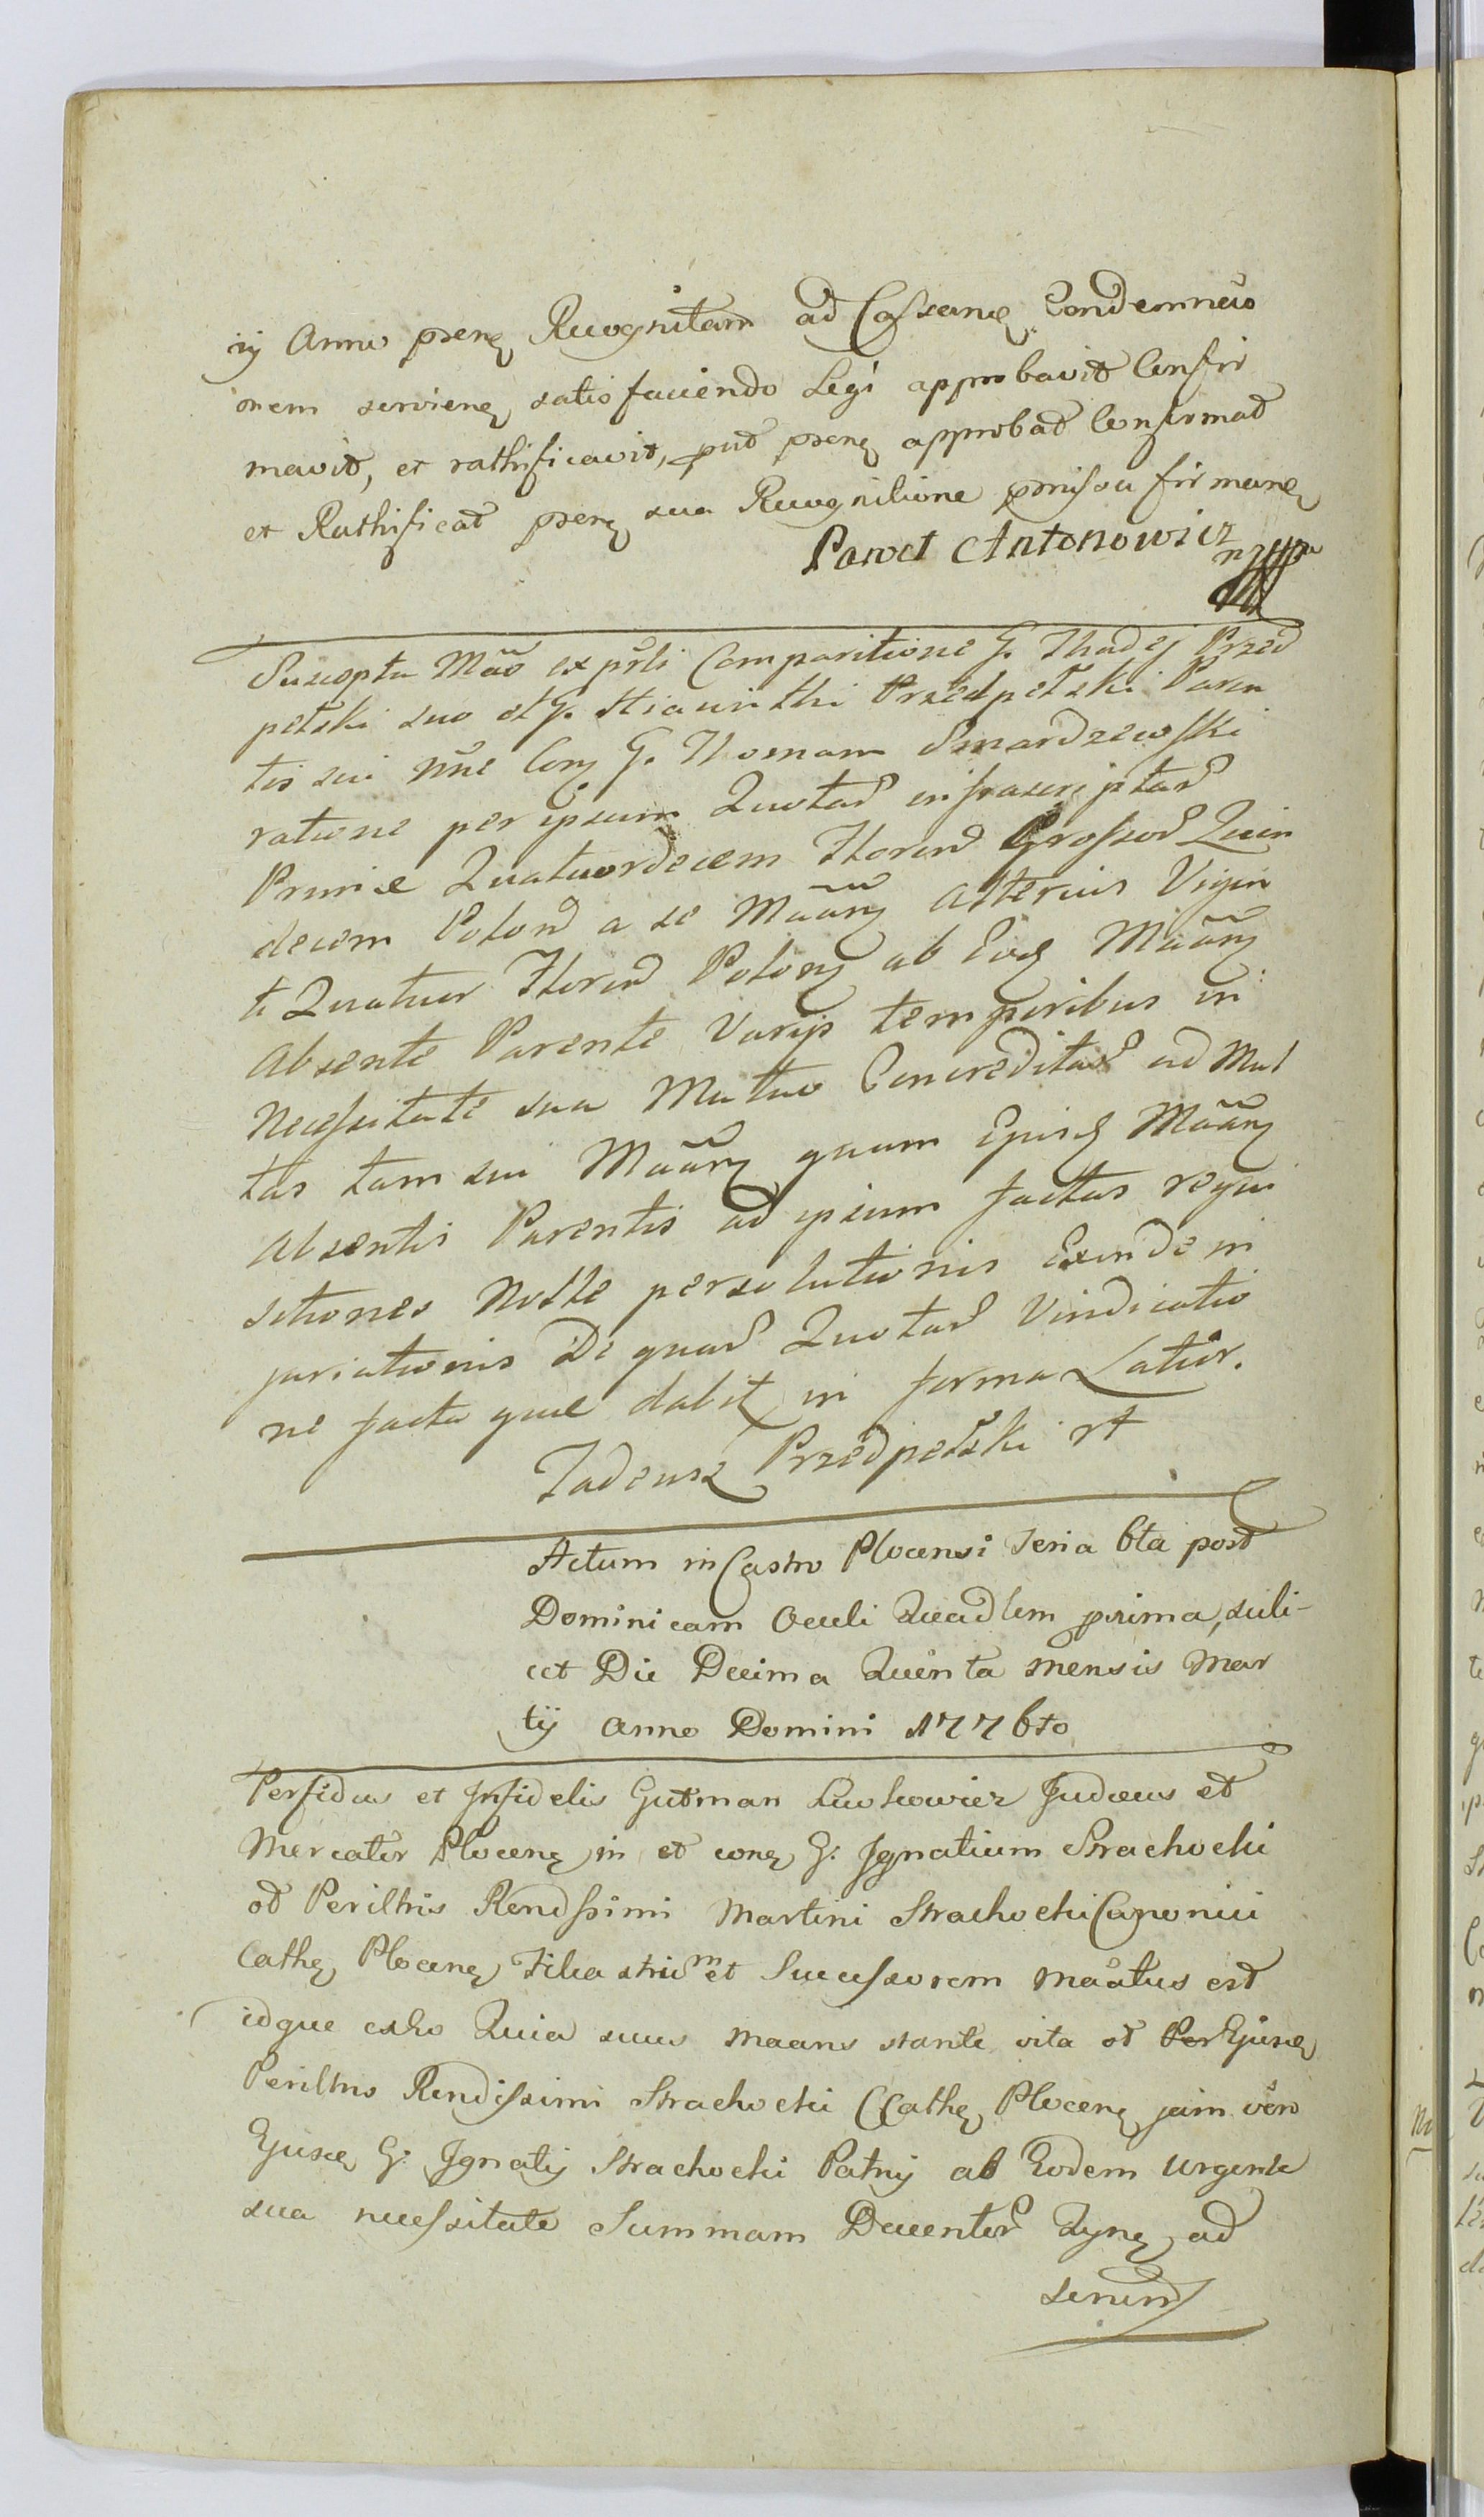 ij Anno psenz Recognitam ad Cassanz Condemnõo
onem servienz satisfaciendo Legi approbavit Confir
mavit, et rathificavit, put psenz approbat Confirmat
et Rathificat psenz sua Recognitione pmissa firmanz
Paweł Antonowicz mppa
Suscepta Mão ex psli Comparitione G. Thadej Przed
petski suo et G. Hiacinthi Przedpetski Paren
tis sui nne Conz G. Thomam Smardzewski
ratione per ipsum Quotar infrascriptar
Primæ Quatuordecem Floren Grossor Quin
decem Polon a se Mãanz alterius Vigin
ti Quatuor Floren Polonz ab Eod Mãanz
absente Parente Varijs temporibus in
Necessitate sua Mutuo Concreditar ad Mul
tas tam sui Mãanz quam Ejusd Mãanz
absentis Parentis ad ipsum factas requi
sitiones Nolle persolutionis Exinde in
juriationis De quar Quotar Vindicatio
ne facta quæ dabit in forma Latiori.
Tadeusz Przedpełski rt
Actum in Castro Plocensi Feria 6ta post
Dominicam Oculi Quadlem prima, scili-
cet Die Decima Quinta mensis Mar
tij Anno Domini 1776to
Perfidus et Infidelis Gutman Lewkowicz Judæus et
Mercator Plocenz in et conz G: Ignatium Strachocki
ad Periltris Rendssimi Martini Strachocki Canonici
Cathz Plocenz Filiastrum et Successorem maatus est
idque exho Quia suus maans stante vita ad Per Ejusdz
Periltris Rendissimi Strachocki C Cathz Plocenz jam vero
Ejusdz G: Ignatij Strachocki Patrij ab Eodem urgente
sua necessitate Summam Ducentor Tynz ad
serund